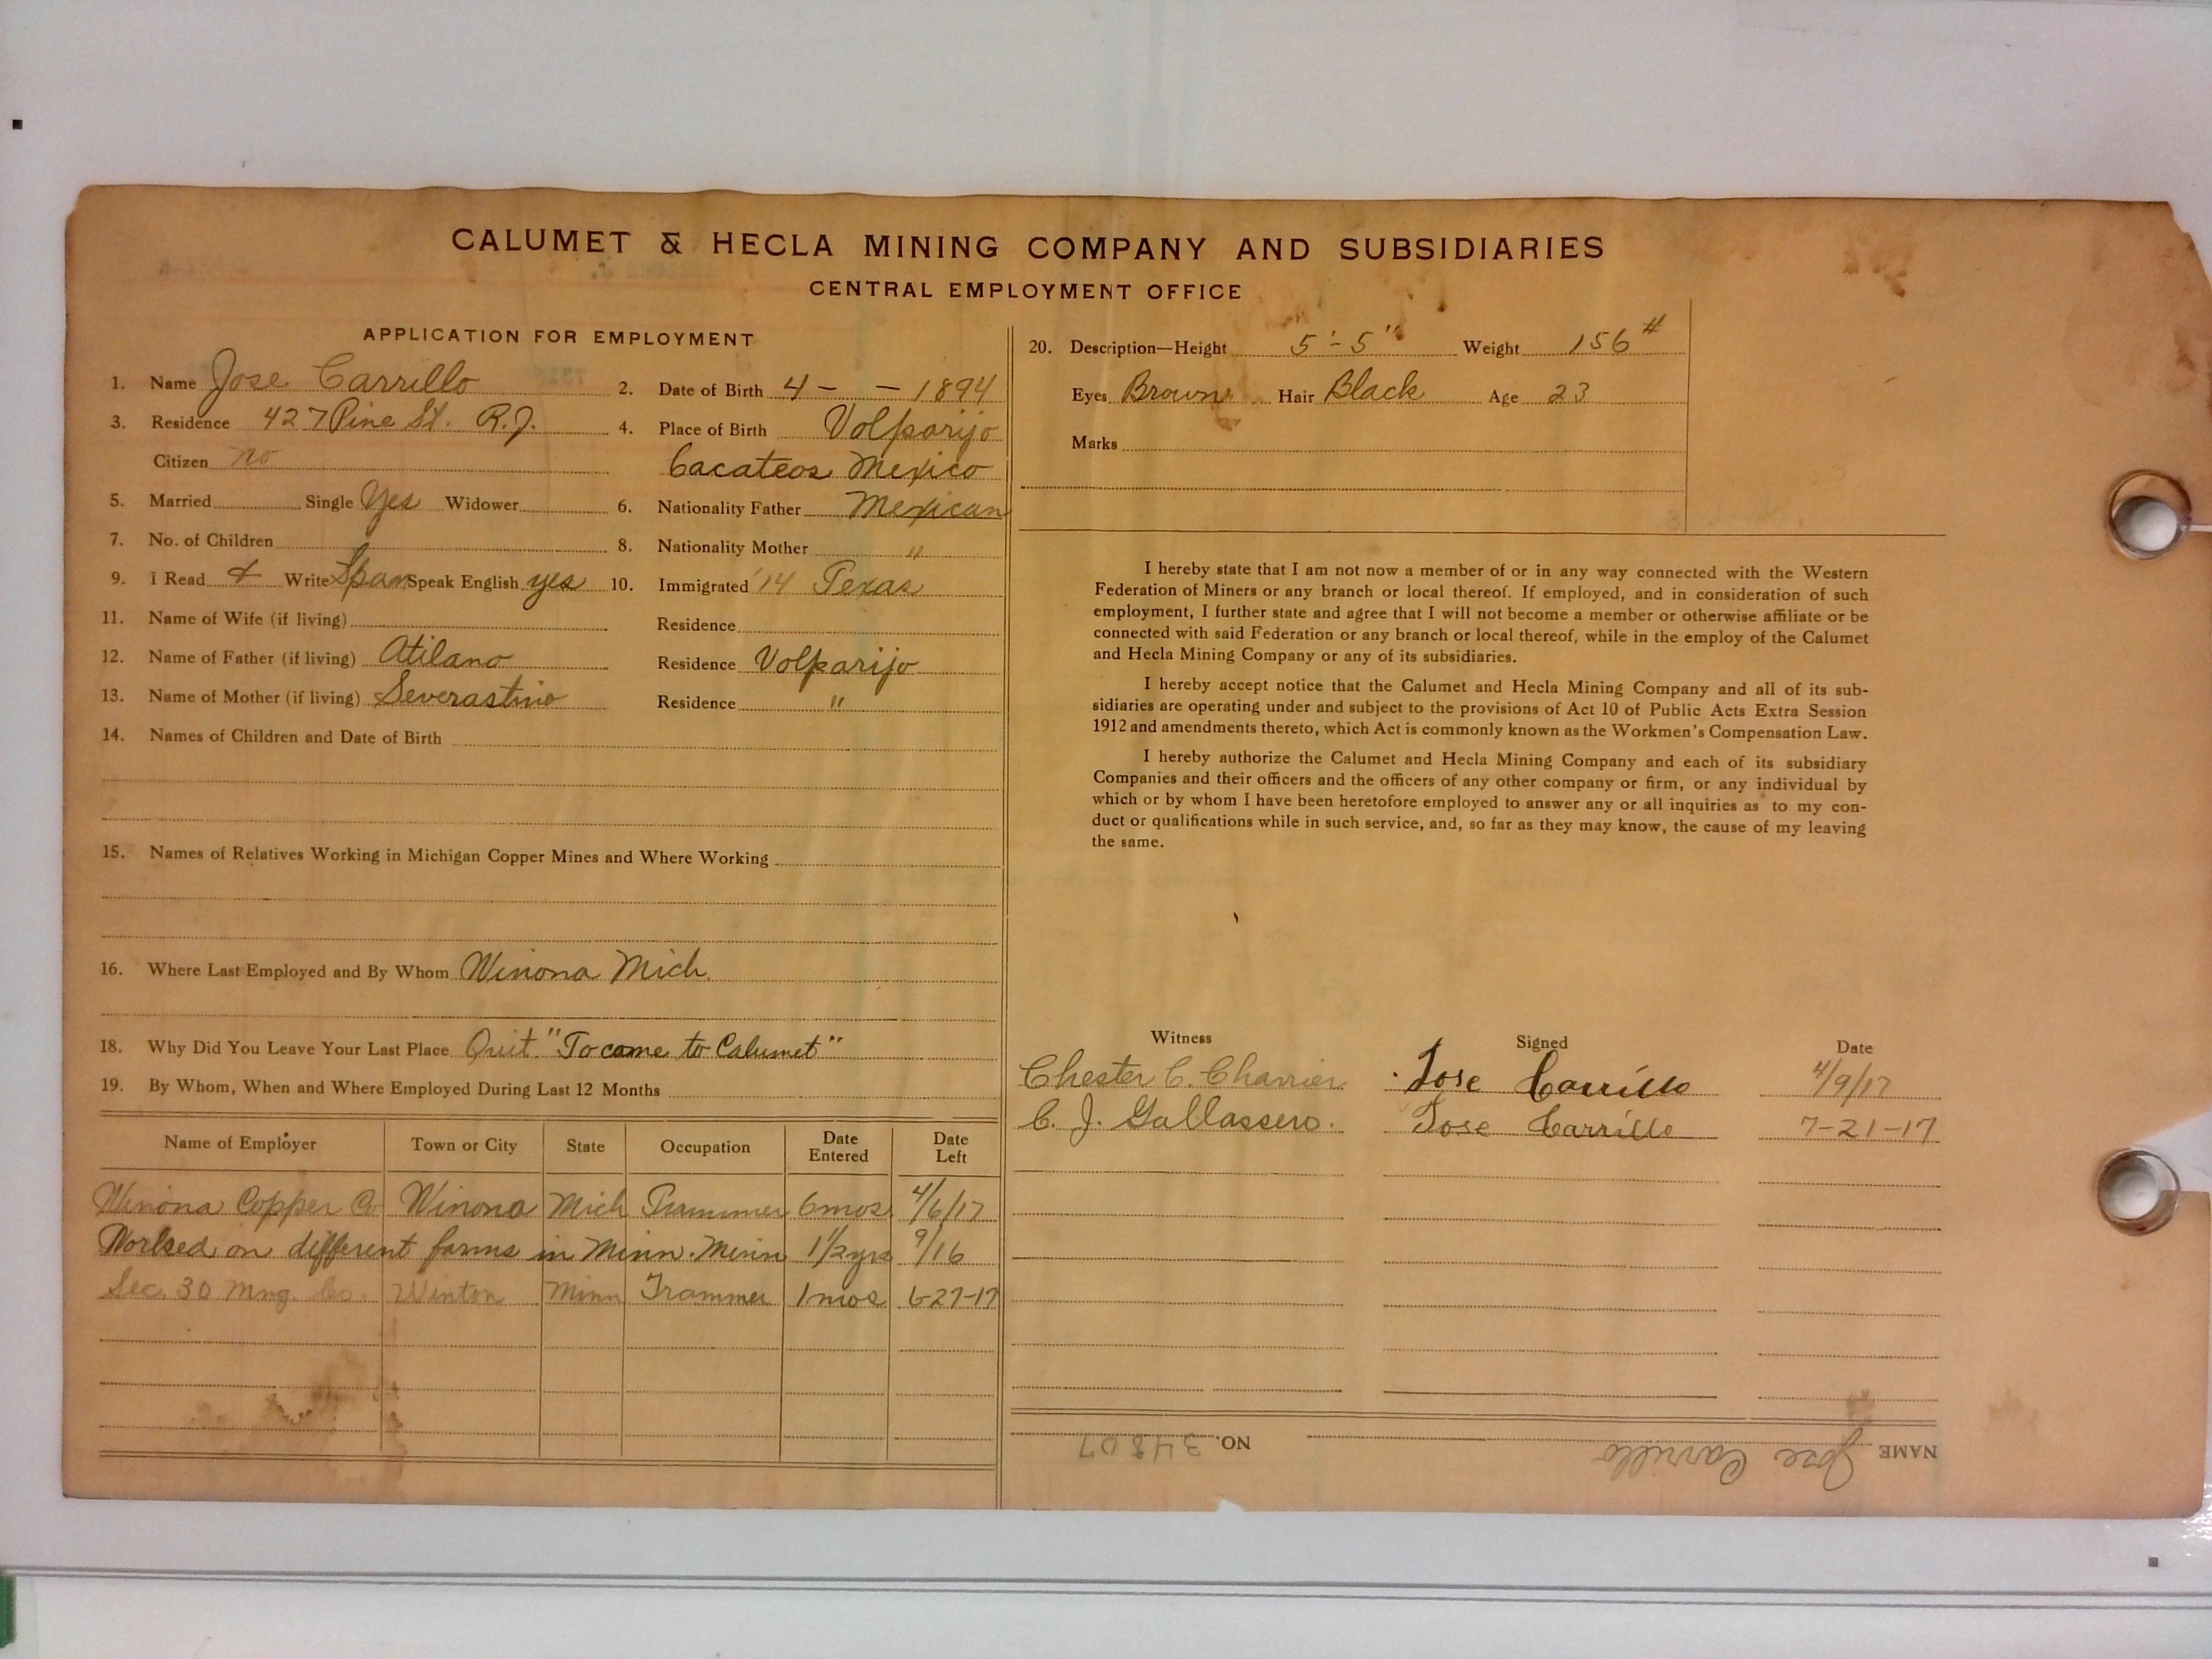 CALUMET & HECLA MINING COMPANY AND SUBSIDIARIES
CENTRAL EMPLOYMENT OFFICE
APPLICATION FOR EMPLOYMENT
1. Name Jose Carrillo 2. Date of Birth 4 - - 1894
3. Residence 427 Pine St. R.J. 4. Place of Birth Volparijo
Citizen no Cacateos Mexico
5. Married Single Yes Widower 6. Nationality Father Mexican
7. No. of Children 8. Nationality Mother "
9. I Read & Write Span Speak English yes 10. Immigrated '14 Texas
11. Name of Wife (if living) Residence
12. Name of Father (if living) Atilano Residence Volparijo
13. Name of Mother (if living) Severastino Residence "
14. Names of Children and Date of Birth
15. Names of Relatives Working in Michigan Copper Mines and Where Working
16. Where Last Employed and By Whom Winona Mich.
18. Why Did You Leave Your Last Place Quit. "To come to Calumet"
19. By Whom, When and Where Employed During Last 12 Months
Name of Employer Town or City State Occupation Date Entered Date Left
Winona Copper Co Winona Mich Trammer 6mos 4/6/17
Worked on different farms in Minn. Minn 1 1/2 yrs 9/16
Sec. 30 Mng. Co. Winton Minn Trammer 1 mos 6-27-17
20. Description—Height 5'-5" Weight 156#
Eyes Brown Hair Black Age 23
Marks
I hereby state that I am not now a member of or in any way connected with the Western
Federation of Miners or any branch or local thereof. If employed, and in consideration of such
employment, I further state and agree that I will not become a member or otherwise affiliate or be
connected with said Federation or any branch or local thereof, while in the employ of the Calumet
and Hecla Mining Company or any of its subsidiaries.
I hereby accept notice that the Calumet and Hecla Mining Company and all of its sub-
sidiaries are operating under and subject to the provisions of Act 10 of Public Acts Extra Session
1912 and amendments thereto, which Act is commonly known as the Workmen's Compensation Law.
I hereby authorize the Calumet and Hecla Mining Company and each of its subsidiary
Companies and their officers and the officers of any other company or firm, or any individual by
which or by whom I have been heretofore employed to answer any or all inquiries as to my con-
duct or qualifications while in such service, and, so far as they may know, the cause of my leaving
the same.
Witness Signed Date
Chester C. Charrier Jose Carrillo 4/9/17
C. J. Gallassero. Jose Carrillo 7-21-17
NAME Jose Carrillo NO. 34807